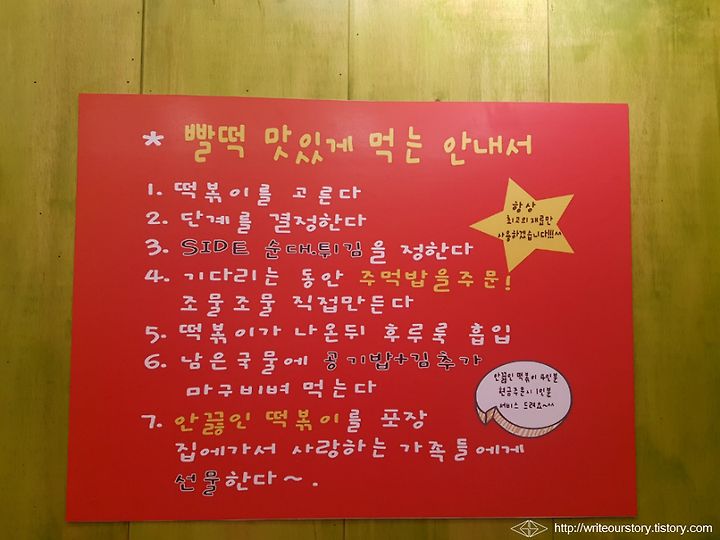 * 빨떡 맛있게 먹는 안내서
1. 떡볶이를 고른다
2. 단계를 결정한다
3. SIDE 순대.튀김을 정한다
4. 기다리는 동안 주먹밥을주문!
조물조물 직접만든다
5. 떡볶이가 나온뒤 후루룩 흡입
6. 남은국물에 공기밥+김추가
마구비벼 먹는다
7. 안끓인 떡볶이를 포장
집에가서 사랑하는 가족들에게
선물한다~.
항상
최고의 재료만
사용하겠습니다!!!^^
안끓인 떡볶이 4인분
현금주문시 1인분
서비스 드려요~^^
http://writeourstory.tistory.com